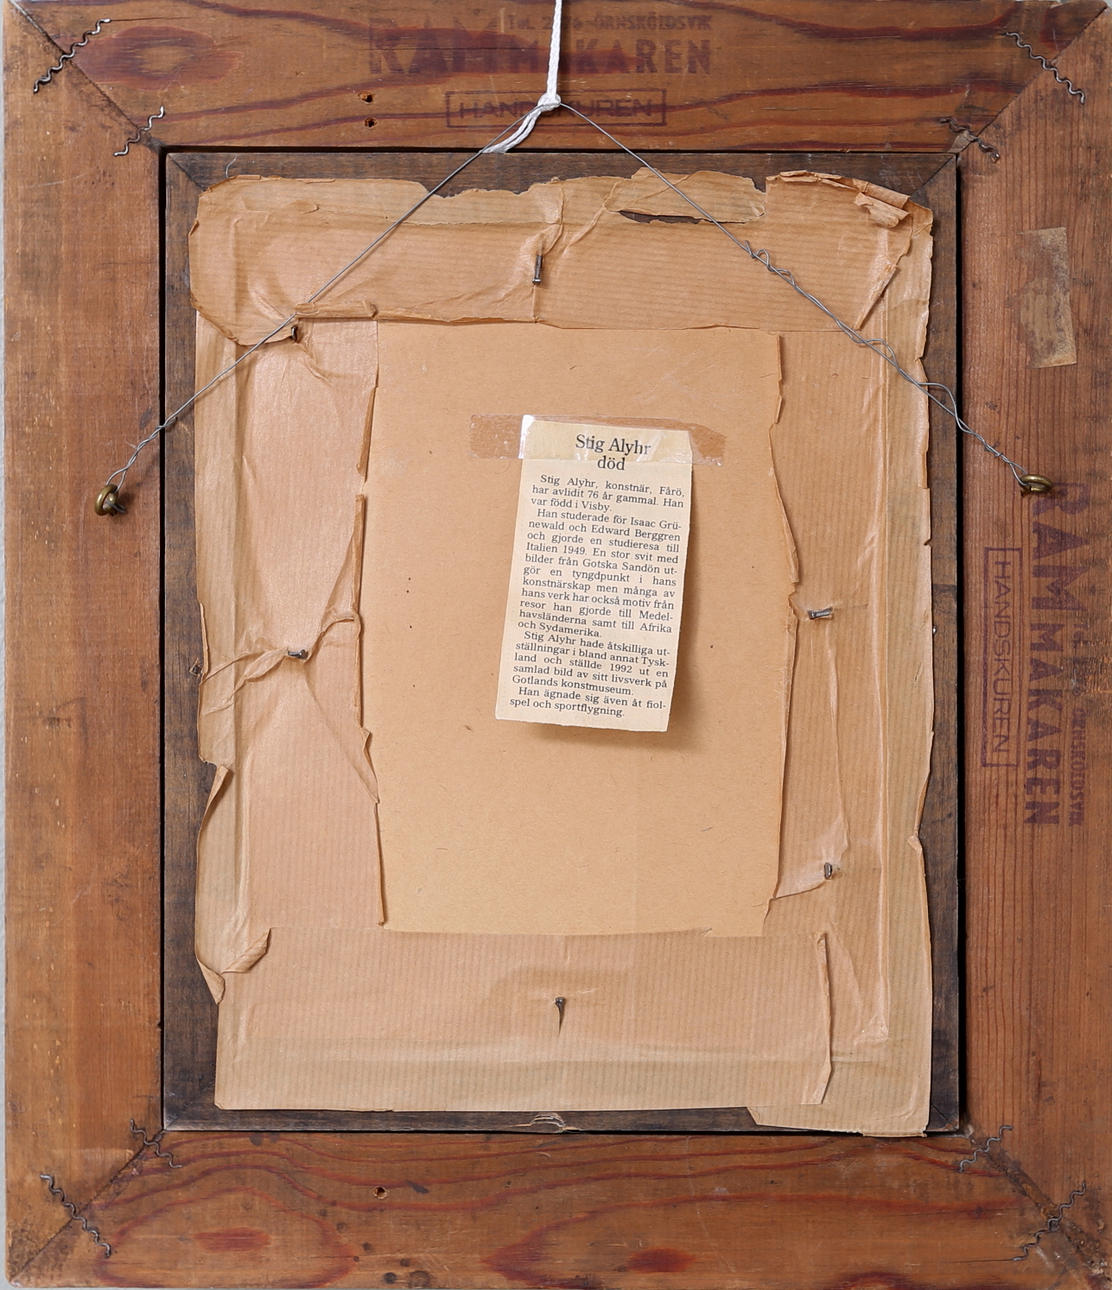 Tel. ÖRNSKÖLDSVIK
RAMMAKAREN
HANDSKUREN
Stig Alyhr
död
Stig Alyhr, konstnär, Fårö,
har avlidit 76 år gammal. Han
var född i Visby.
Han studerade för Isaac Grü-
newald och Edward Berggren
och gjorde en studieresa till
Italien 1949. En stor svit med
bilder från Gotska Sandön ut-
gör en tyngdpunkt i hans
konstnärskap men många av
hans verk har också motiv från
resor han gjorde till Medel-
havsländerna samt till Afrika
och Sydamerika.
Stig Alyhr hade åtskilliga ut-
ställningar i bland annat Tysk-
land och ställde 1992 ut en
samlad bild av sitt livsverk på
Gotlands konstmuseum.
Han ägnade sig även åt fiol-
spel och sportflygning.
ÖRNSKÖLDSVIK
RAMMAKAREN
HANDSKUREN